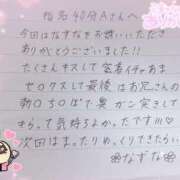 指名40分Aさんへ
今回はなずなをお誘いいただき
ありがとうございました!!
たくさんキスして密着イチャあま
セロクスして最後はお兄さんの
勃〇ち〇ぽで奥ガン突きして
もらって気持ちよかったです!!!♡
次回はまったりゆっくりできたらいい
❀なずな❀